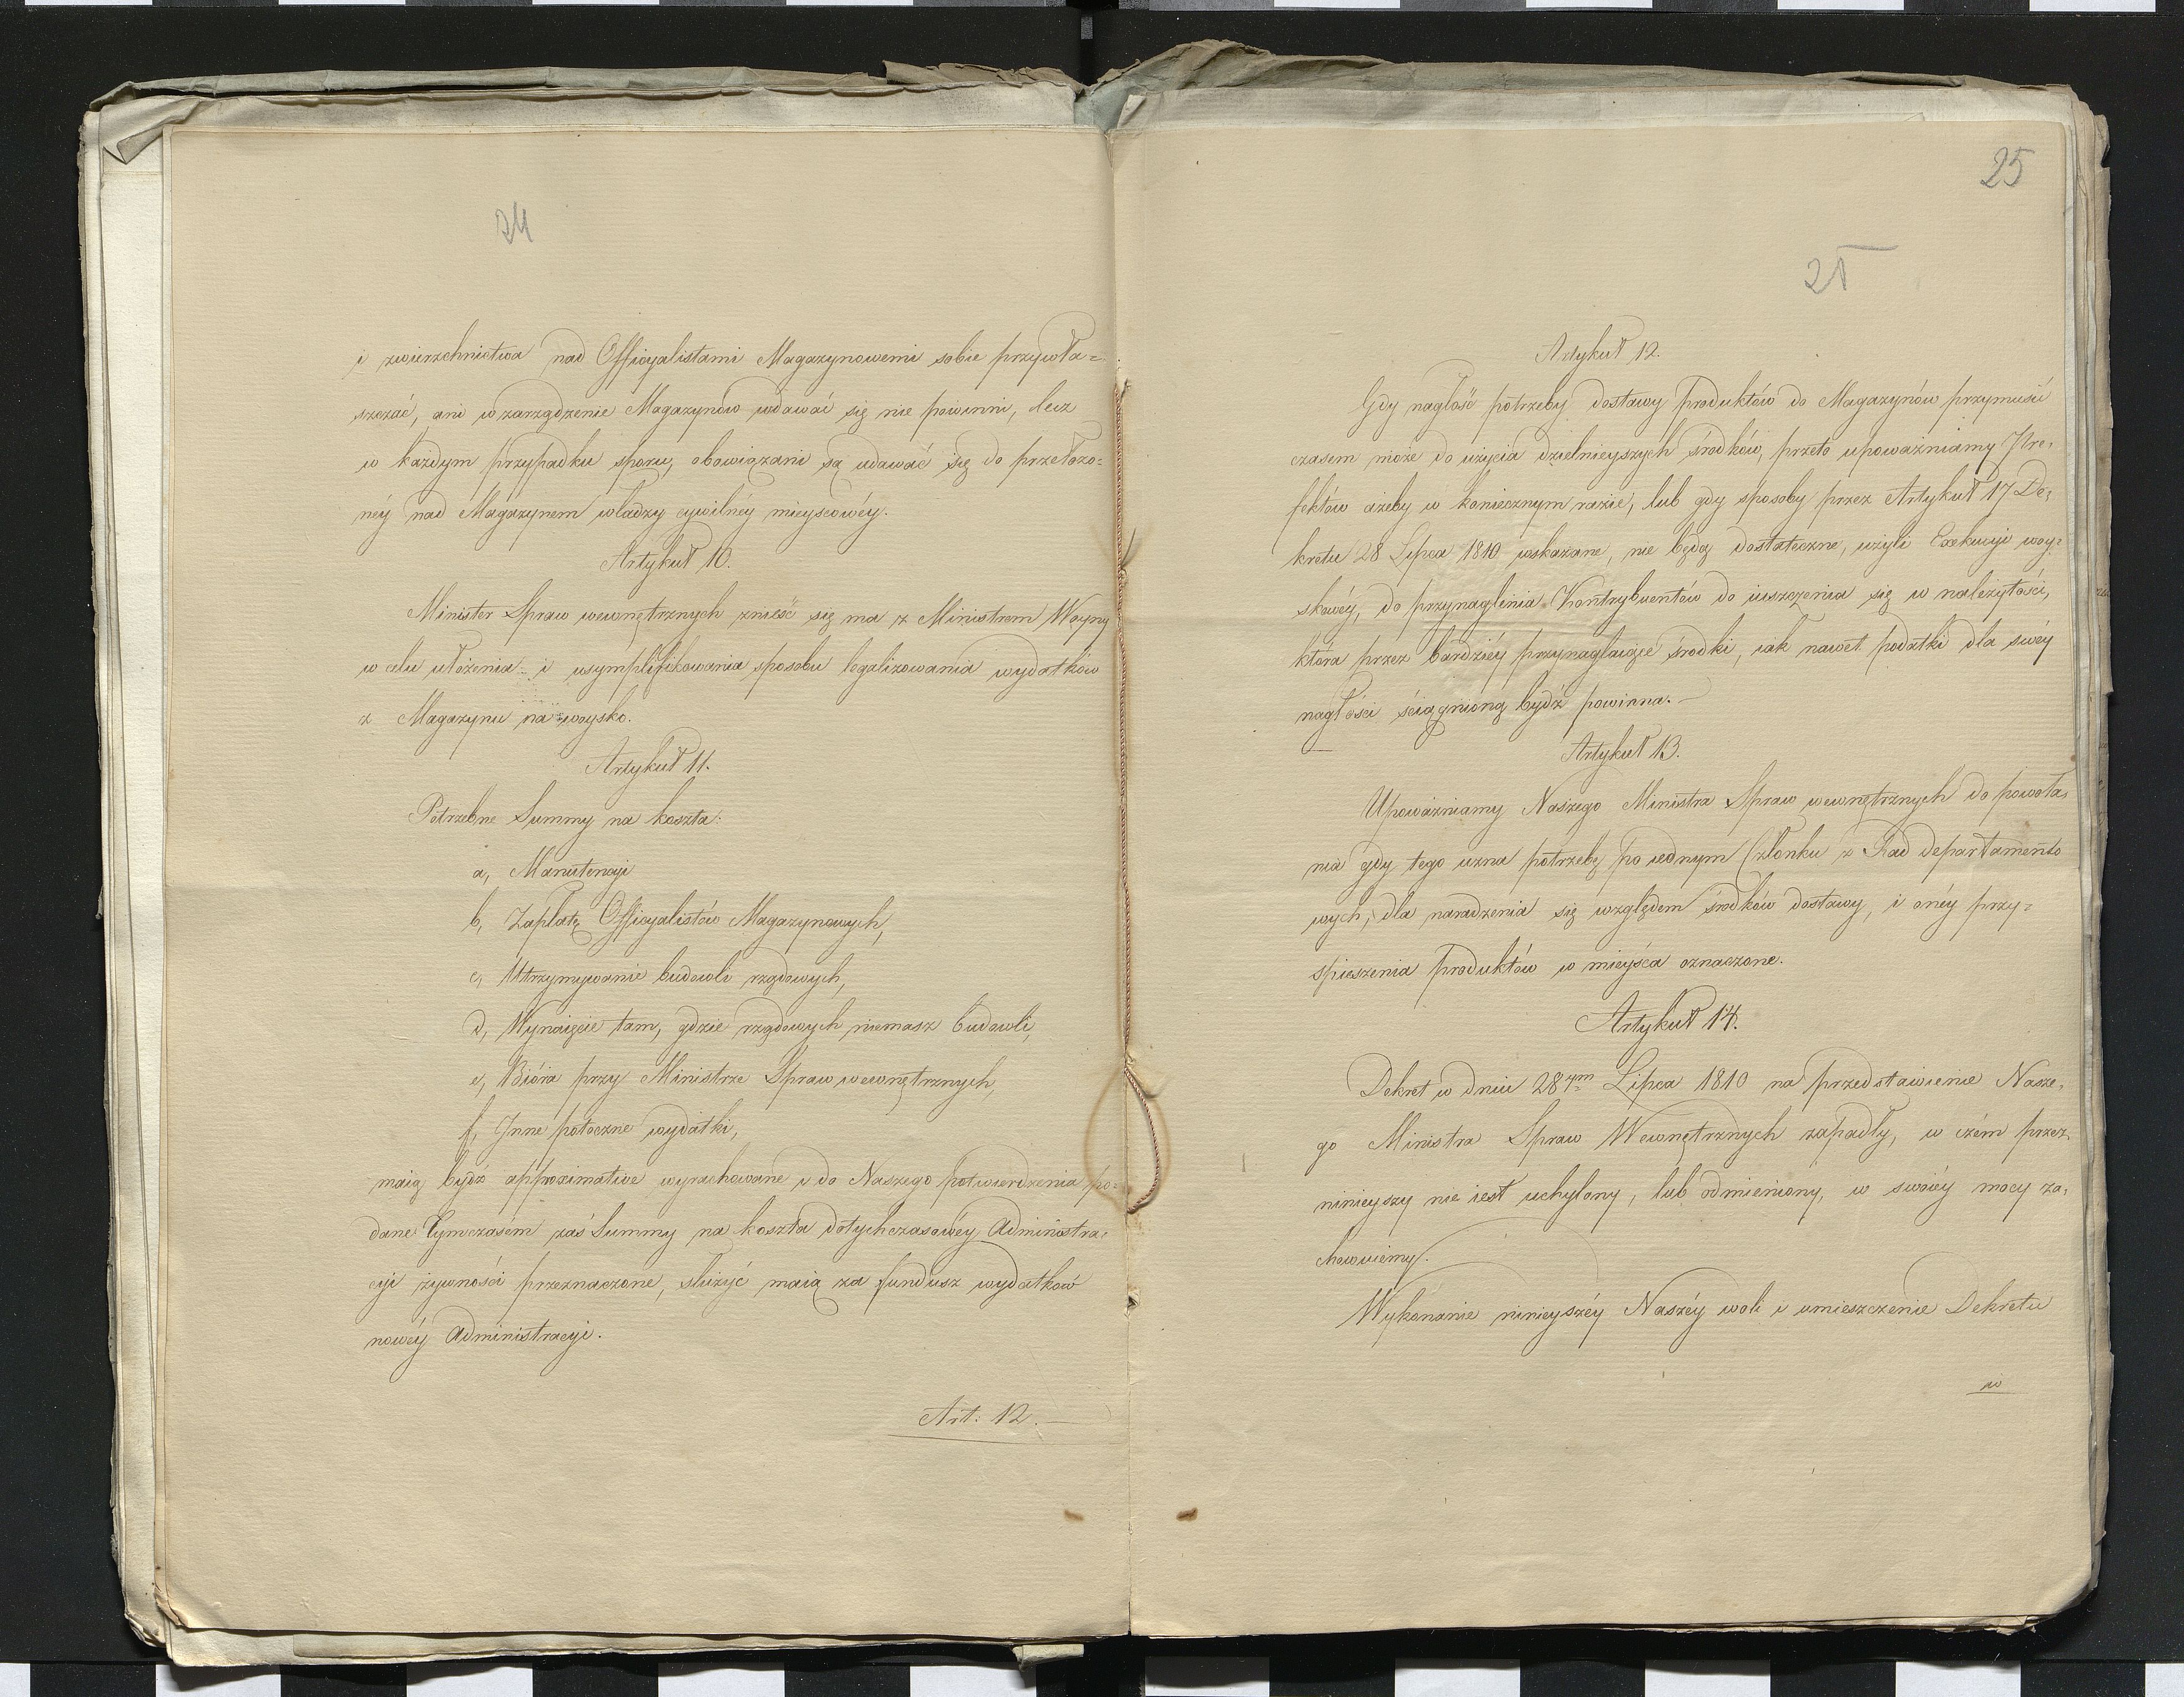 24
i zwierzchnictwa nad Officyalistami Magazynowemi sobie przywła=
szczać, ani w zarządzenie Magazynów wdawać się nie powinni, lecz
w każdym przypadku sporu, obowiązani są udawać się do przełożo=
néy nad Magazynem władzy cywilnéy mieyscowéy.
Artykuł 10.
Minister Spraw wewnętrznych znieść się ma z Ministrem Woyny
w celu ułożenia i usymplifikowania sposobu legalizowania wydatków
z Magazynu na woysko.
Artykuł 11.
Potrzebne Summy na koszta:
a, Manutencyi
b, Zapłatę Officyalistów Magazynowych,
c, Utrzymywanie budowli rządowych,
d, Wynaięcie tam, gdzie rządowych niemasz budowli,
e, Bióra przy Ministrze Spraw wewnętrznych,
f, Inne potoczne wydatki,
maią bydź approximative wyrachowane i do Naszego potwierdzenia po=
dane Tymczasem zaś Summy na koszta dotychczasowéy Administra=
cyi żywności przeznaczone, służyć maią za fundusz wydatków
nowéy Administracyi.
Art. 12.
25
25
Artykuł 12.
Gdy nagłość potrzeby dostawy produktów do Magazynów przymusić
czasem może do użycia dzielnieyszych środków, przeto upoważniamy Pre=
fektów ażeby w koniecznym razie, lub gdy sposoby przez Artykuł 17 De=
kretu 28 Lipca 1810 wskazane, nie będą dostateczne, użyli Exekucyi woy=
skowéy, do przynaglenia Kontrybuentów do uiszczenia się w należytości,
która przez bardziéy przynaglaiące środki, iak nawet podatki dla swéy
nagłości ściągnioną bydź powinna.
Artykuł 13.
Upoważniamy Naszego Ministra Spraw wewnętrznych do powoła=
nia gdy tego uzna potrzebę po iednym Członku z Rad departamento
wych, dla naradzenia się względem środków dostawy, i onéy przy=
spieszenia produktów w mieysca oznaczone.
Artykuł 14.
Dekret w dniu 28ym Lipca 1810 na przedstawienie Nasze=
go Ministra Spraw Wewnętrznych zapadły, w czém przez
ninieyszy nie iest uchylony, lub odmieniony, w swoiéy mocy za=
chowuiemy.
Wykonanie ninieyszéy Naszéy woli i umieszczenie Dekretu
w